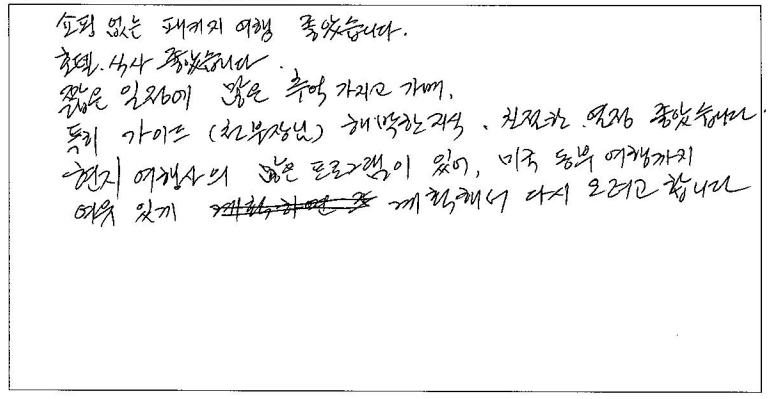 쇼핑 없는 패키지 여행 좋았습니다.
호텔. 식사 좋았습니다.
짧은 일정에 많은 추억 가지고 가며,
특히 가이드 (천부장님) 해박한 지식. 친절한. 열정 좋았습니다.
현지 여행사의 많은 프로그램이 있어, 미국 동부 여행까지
여유 있게 계획해서 다시 오려고 합니다